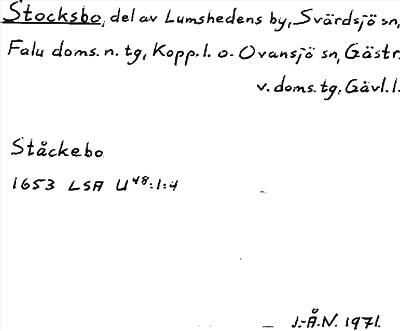 Stocksbo, del av Lumshedens by, Svärdsjö sn,
Falu doms. n. tg, Kopp. l. o. Ovansjö sn, Gästr.
v. doms. tg, Gävl. l.
Ståckebo
1653 LSA U48:1:4
J.-Å.N. 1971.